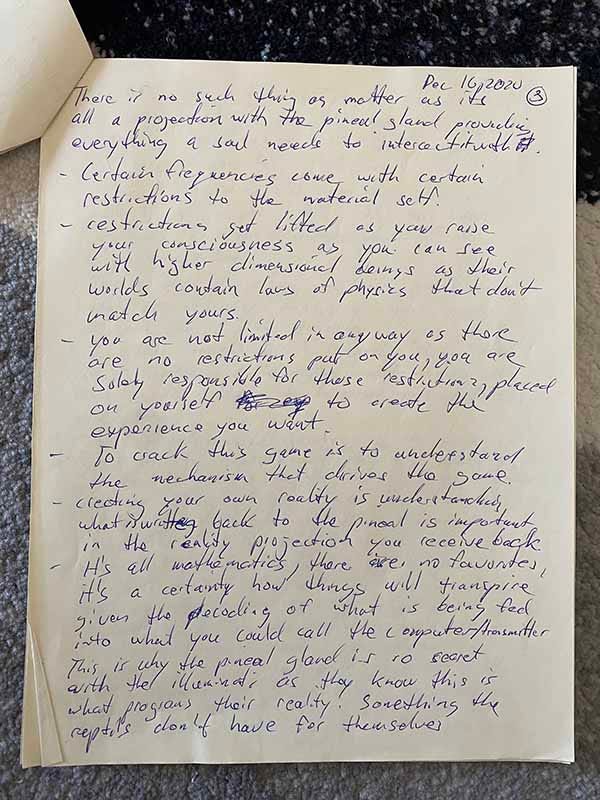 Dec 16, 2020 ③
There is no such thing as matter as its
all a projection with the pineal gland providing
everything a soul needs to interact with it.
- Certain frequencies come with certain
restrictions to the material self.
- restrictions get lifted as you raise
your consciousness as you can see
with higher dimensional beings as their
worlds contain laws of physics that don't
match yours.
- you are not limited in anyway as there
are no restrictions put on you, you are
Solely responsible for those restrictions, placed
on yourself to create the
experience you want.
- To crack this game is to understand
the mechanism that drives the game.
- creating your own reality is understanding
what is writing back to the pineal is important
in the reality projection you receive back
- It's all mathematics, there are no favorites,
it's a certainty how things will transpire
given the decoding of what is being fed
into what you could call the computer/transmitter
This is why the pineal gland is so secret
with the illuminati as they know this is
what programs their reality. Something the
reptils don't have for themselves